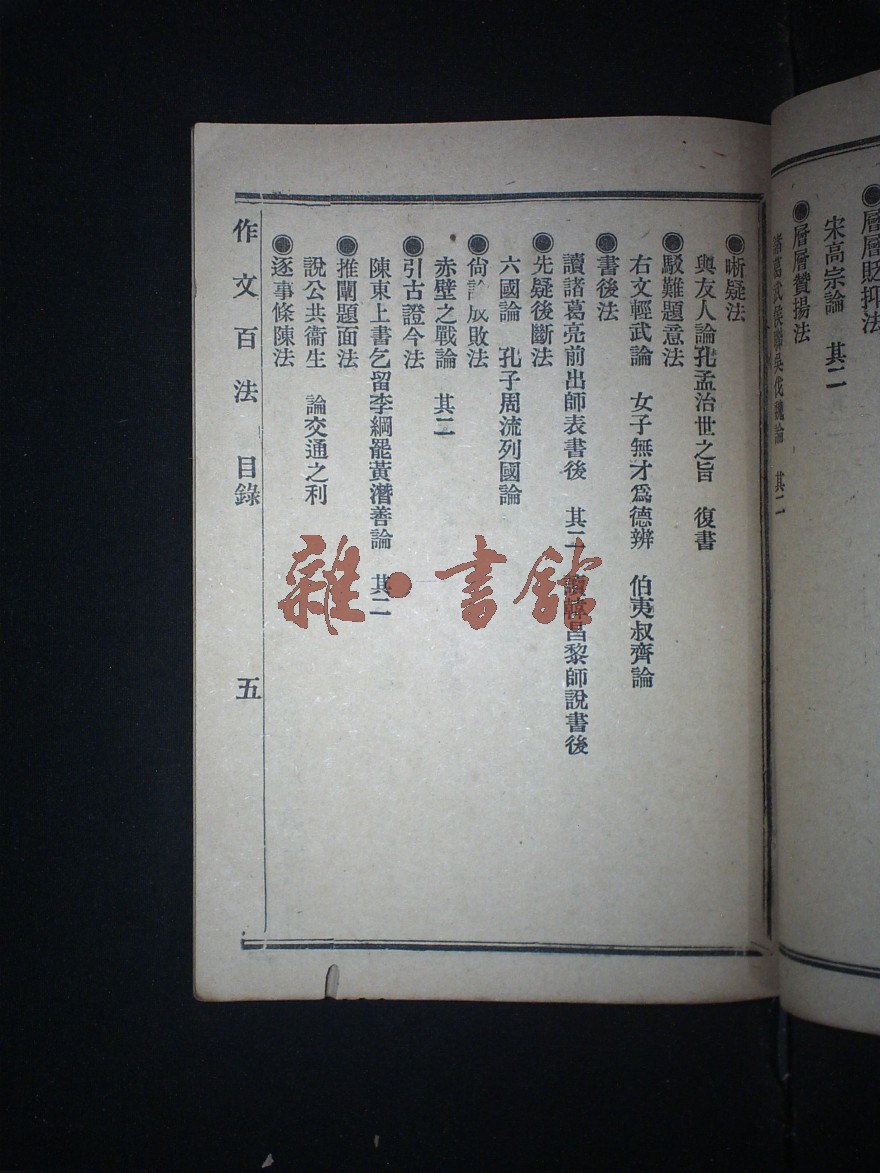 ●層層貶抑法
宋高宗論　其二
●層層贊揚法
諸葛武侯聯吳伐魏論　其二
●晰疑法
與友人論孔孟治世之旨　復書
●駁難題意法
右文輕武論　女子無才爲德辨　伯夷叔齊論
●書後法
讀諸葛亮前出師表書後　其二　讀韓昌黎師說書後
●先疑後斷法
六國論　孔子周流列國論
●尙論成敗法
赤壁之戰論　其二
●引古證今法
陳東上書乞留李綱罷黃潛善論　其二
●推闡題面法
說公共衞生　論交通之利
●逐事條陳法
作文百法　目錄　五
雜·書館